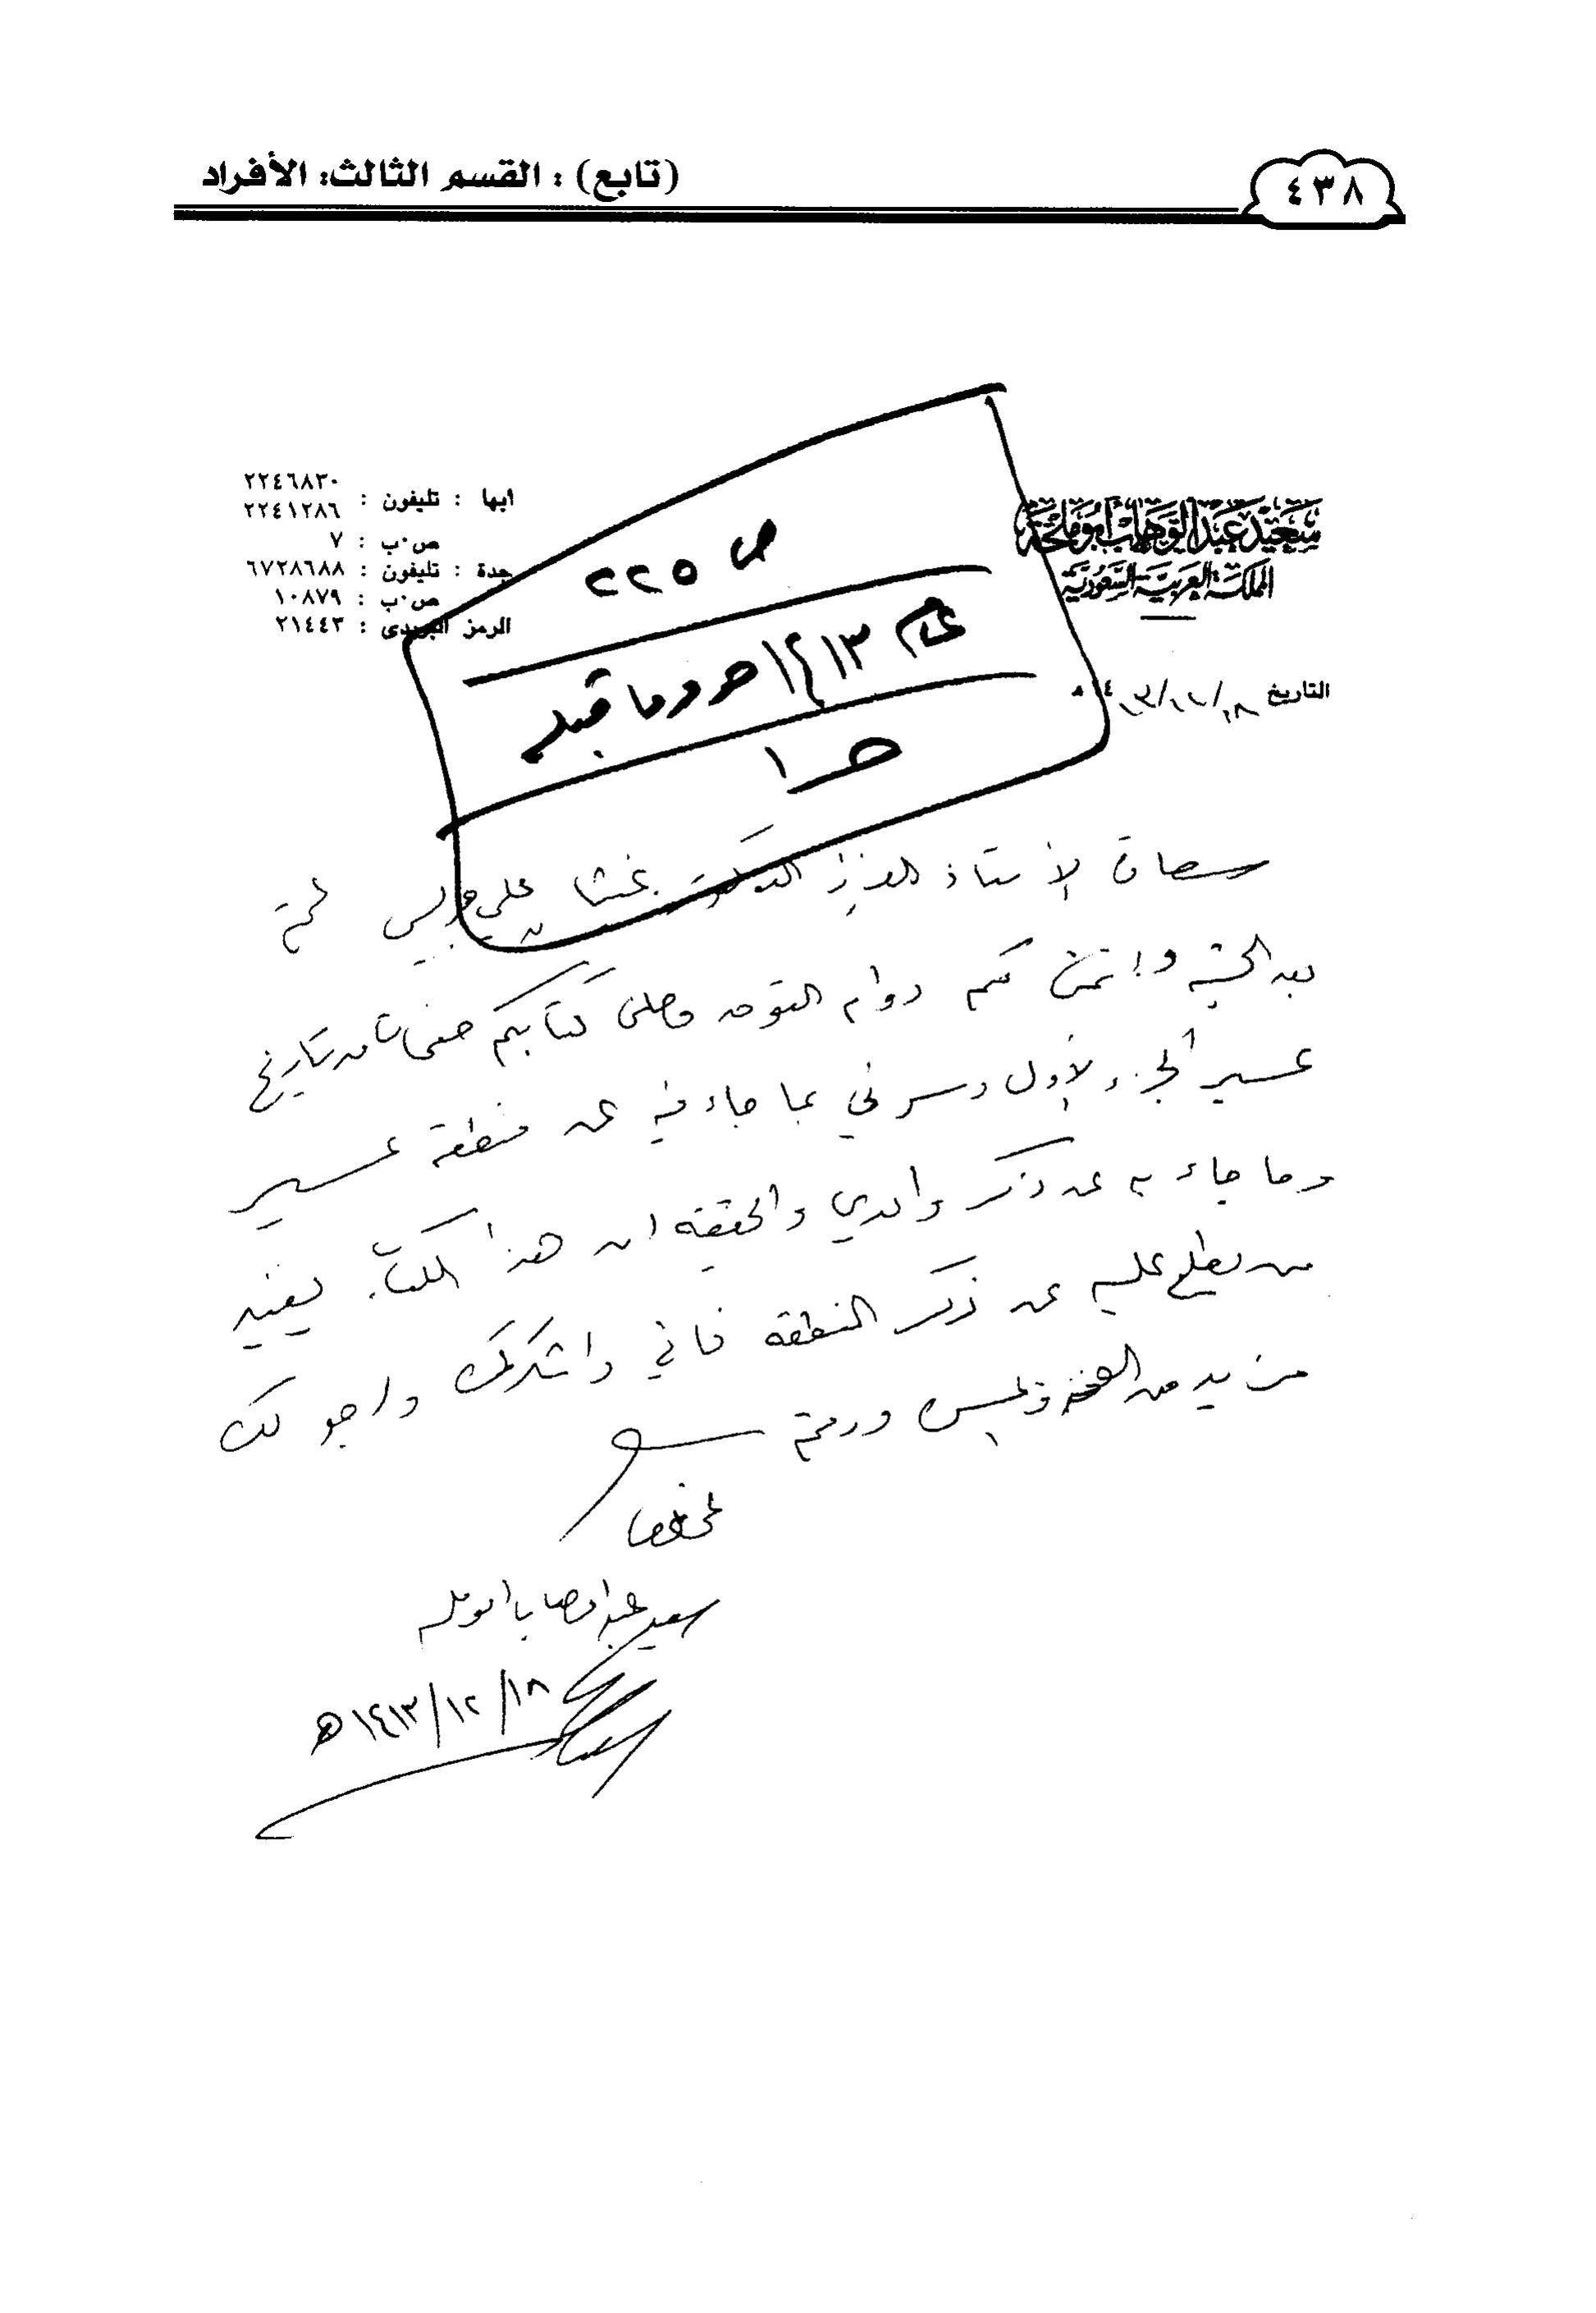 ٤٣٨
(تابع) : القسم الثالث: الأفراد
سعيد عبد الوهاب أبو ملحة
المملكة العربية السعودية
ابها : تليفون : ٢٢٤٦٨٣٠
٢٢٤١٢٨٦
ص.ب : ٧
جدة : تليفون : ٦٧٢٨٦٨٨
ص.ب : ١٠٨٧٩
الرمز البريدى : ٢١٤٤٣
ص ٢٢٥
عام ١٤١٣هـ وما قبله
جـ ١
التاريخ ١٨/١٢/١٤١٣هـ
سعادة الأستاذ العزيز الدكتور غيثان علي جريس المحترم
بعد التحية وأتمنى لكم دوام التوفيق وصلني كتابكم صفحات من تاريخ
عسير الجزء الأول وسرني بما جاء فيه عن منطقة عسير
وما جاء به عن ذكر والدي والحقيقة ان هذا الكتاب يفيد
من يطلع عليه عن ذكر المنطقة فاني واشكرك وارجو لك
مزيد من الصحة ودمتم
مخلصكم
سعيد عبد الوهاب ابو ملحه
١٨/١٢/١٤١٣هـ